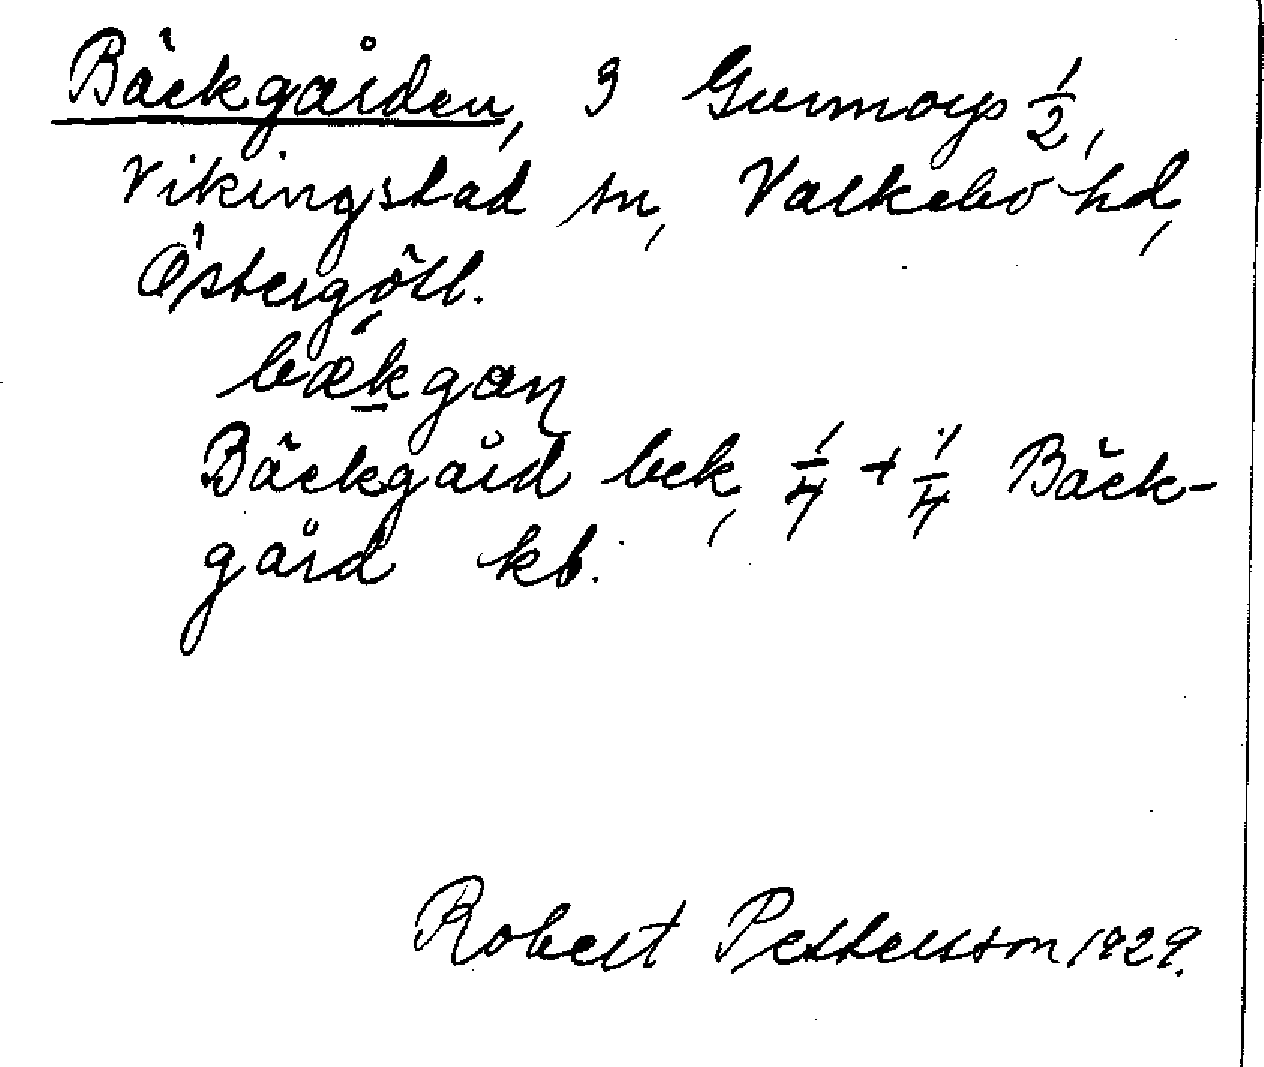 Bäckgården, 3 Gunnorp 1/2,
Vikingstad sn, Valkebo hd,
Östergötl.
bäkgaɳ
Bäckgård bek, 1/4 + 1/4 Bäck-
gård kb.
Robert Pettersson 1929.